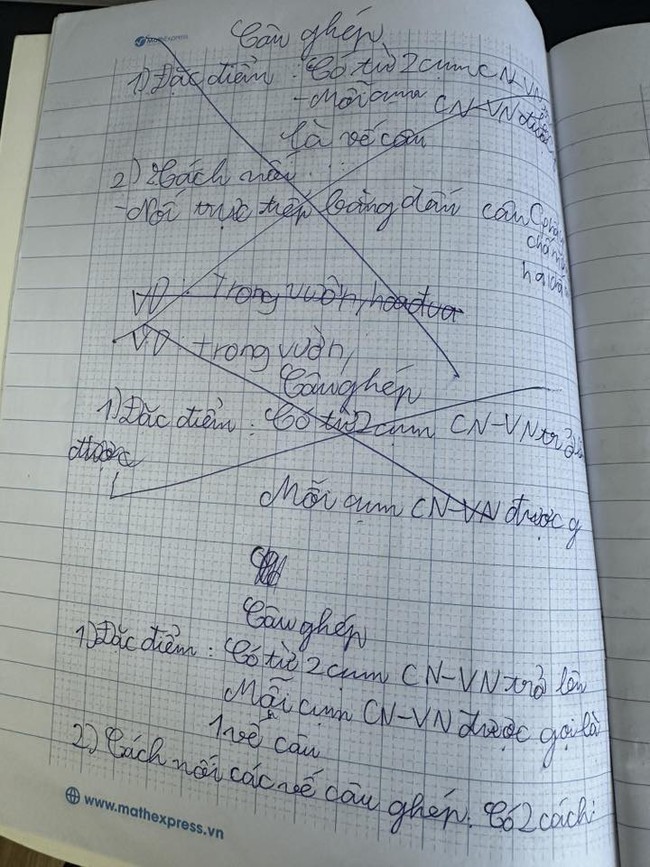 MATHEXPRESS
Câu ghép
1) Đặc điểm : Có từ 2 cụm CN-VN
- Mỗi cụm CN-VN được
là vế câu
2) Cách nối :
- Nối trực tiếp bằng dấu câu (phẩy
chấm
hai chấm
VD : Trong vườn, hoa đua
VD : trong vườn,
Câu ghép
1) Đặc điểm : Có từ 2 cụm CN-VN trở lê
được
Mỗi cụm CN-VN được g
Câu ghép
1) Đặc điểm : Có từ 2 cụm CN-VN trở lên
Mỗi cụm CN-VN được gọi là
1 vế câu
2) Cách nối các vế câu ghép : Có 2 cách:
www.mathexpress.vn